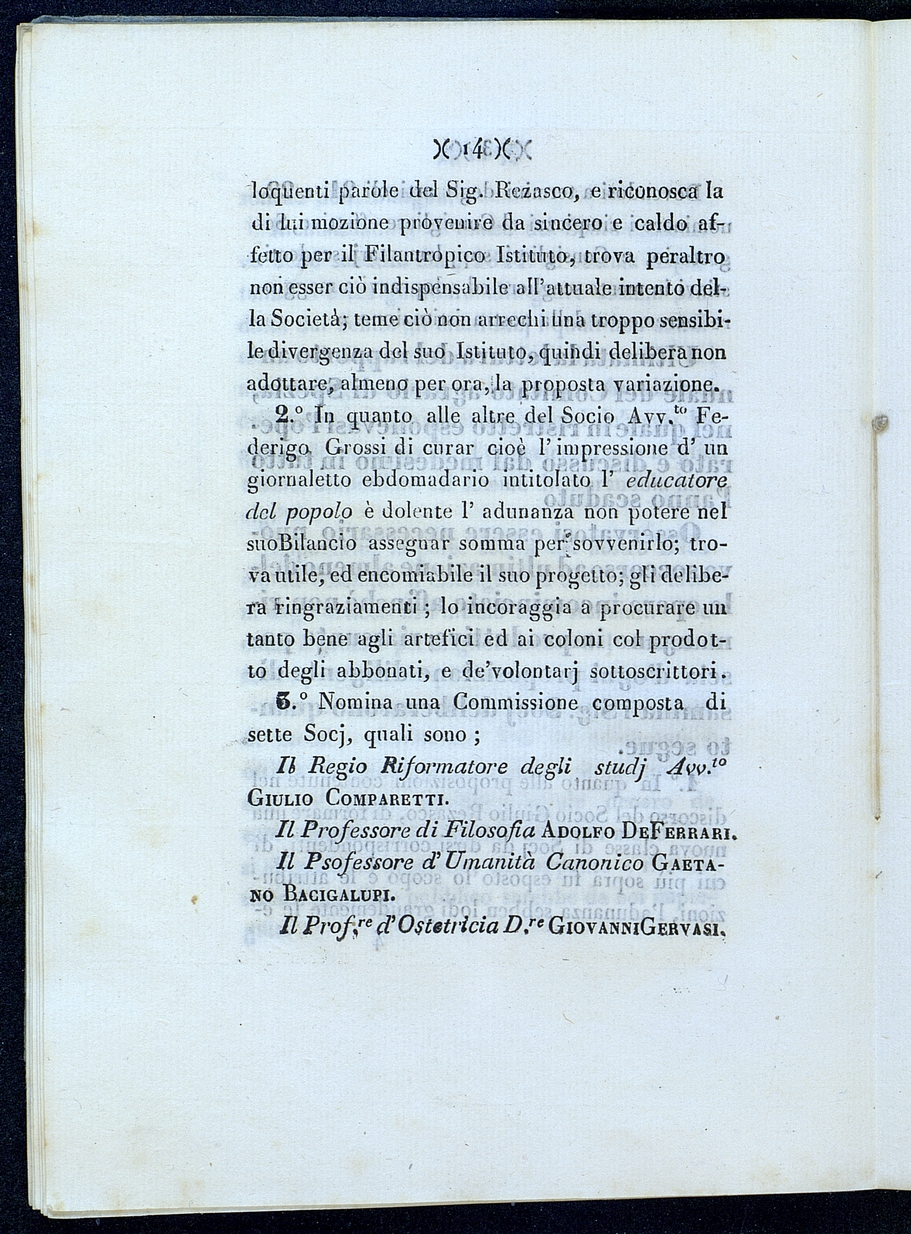 )( 14 )(
loquenti parole del Sig. Rezasco, e riconosca la
di lui mozione provenire da sincero e caldo af-
fetto per il Filantropico Istituto, trova peraltro
non esser ciò indispensabile all'attuale intento del-
la Società; teme ciò non arrechi una troppo sensibi-
le divergenza del suo Istituto, quindi delibera non
adottare, almeno per ora, la proposta variazione.
2.° In quanto alle altre del Socio Avv.to Fe-
derigo Grossi di curar cioè l' impressione d' un
giornaletto ebdomadario intitolato l' educatore
del popolo è dolente l' adunanza non potere nel
suoBilancio assegnar somma per sovvenirlo; tro-
va utile, ed encomiabile il suo progetto; gli delibe-
ra ringraziamenti ; lo incoraggia a procurare un
tanto bene agli artefici ed ai coloni col prodot-
to degli abbonati, e de'volontarj sottoscrittori.
3.° Nomina una Commissione composta di
sette Socj, quali sono ;
Il Regio Riformatore degli studj Avv.to
GIULIO COMPARETTI.
Il Professore di Filosofia ADOLFO DEFERRARI.
Il Psofessore d' Umanità Canonico GAETA-
NO BACIGALUPI.
Il Prof.re d'Ostetricia D.re GIOVANNIGERVASI.